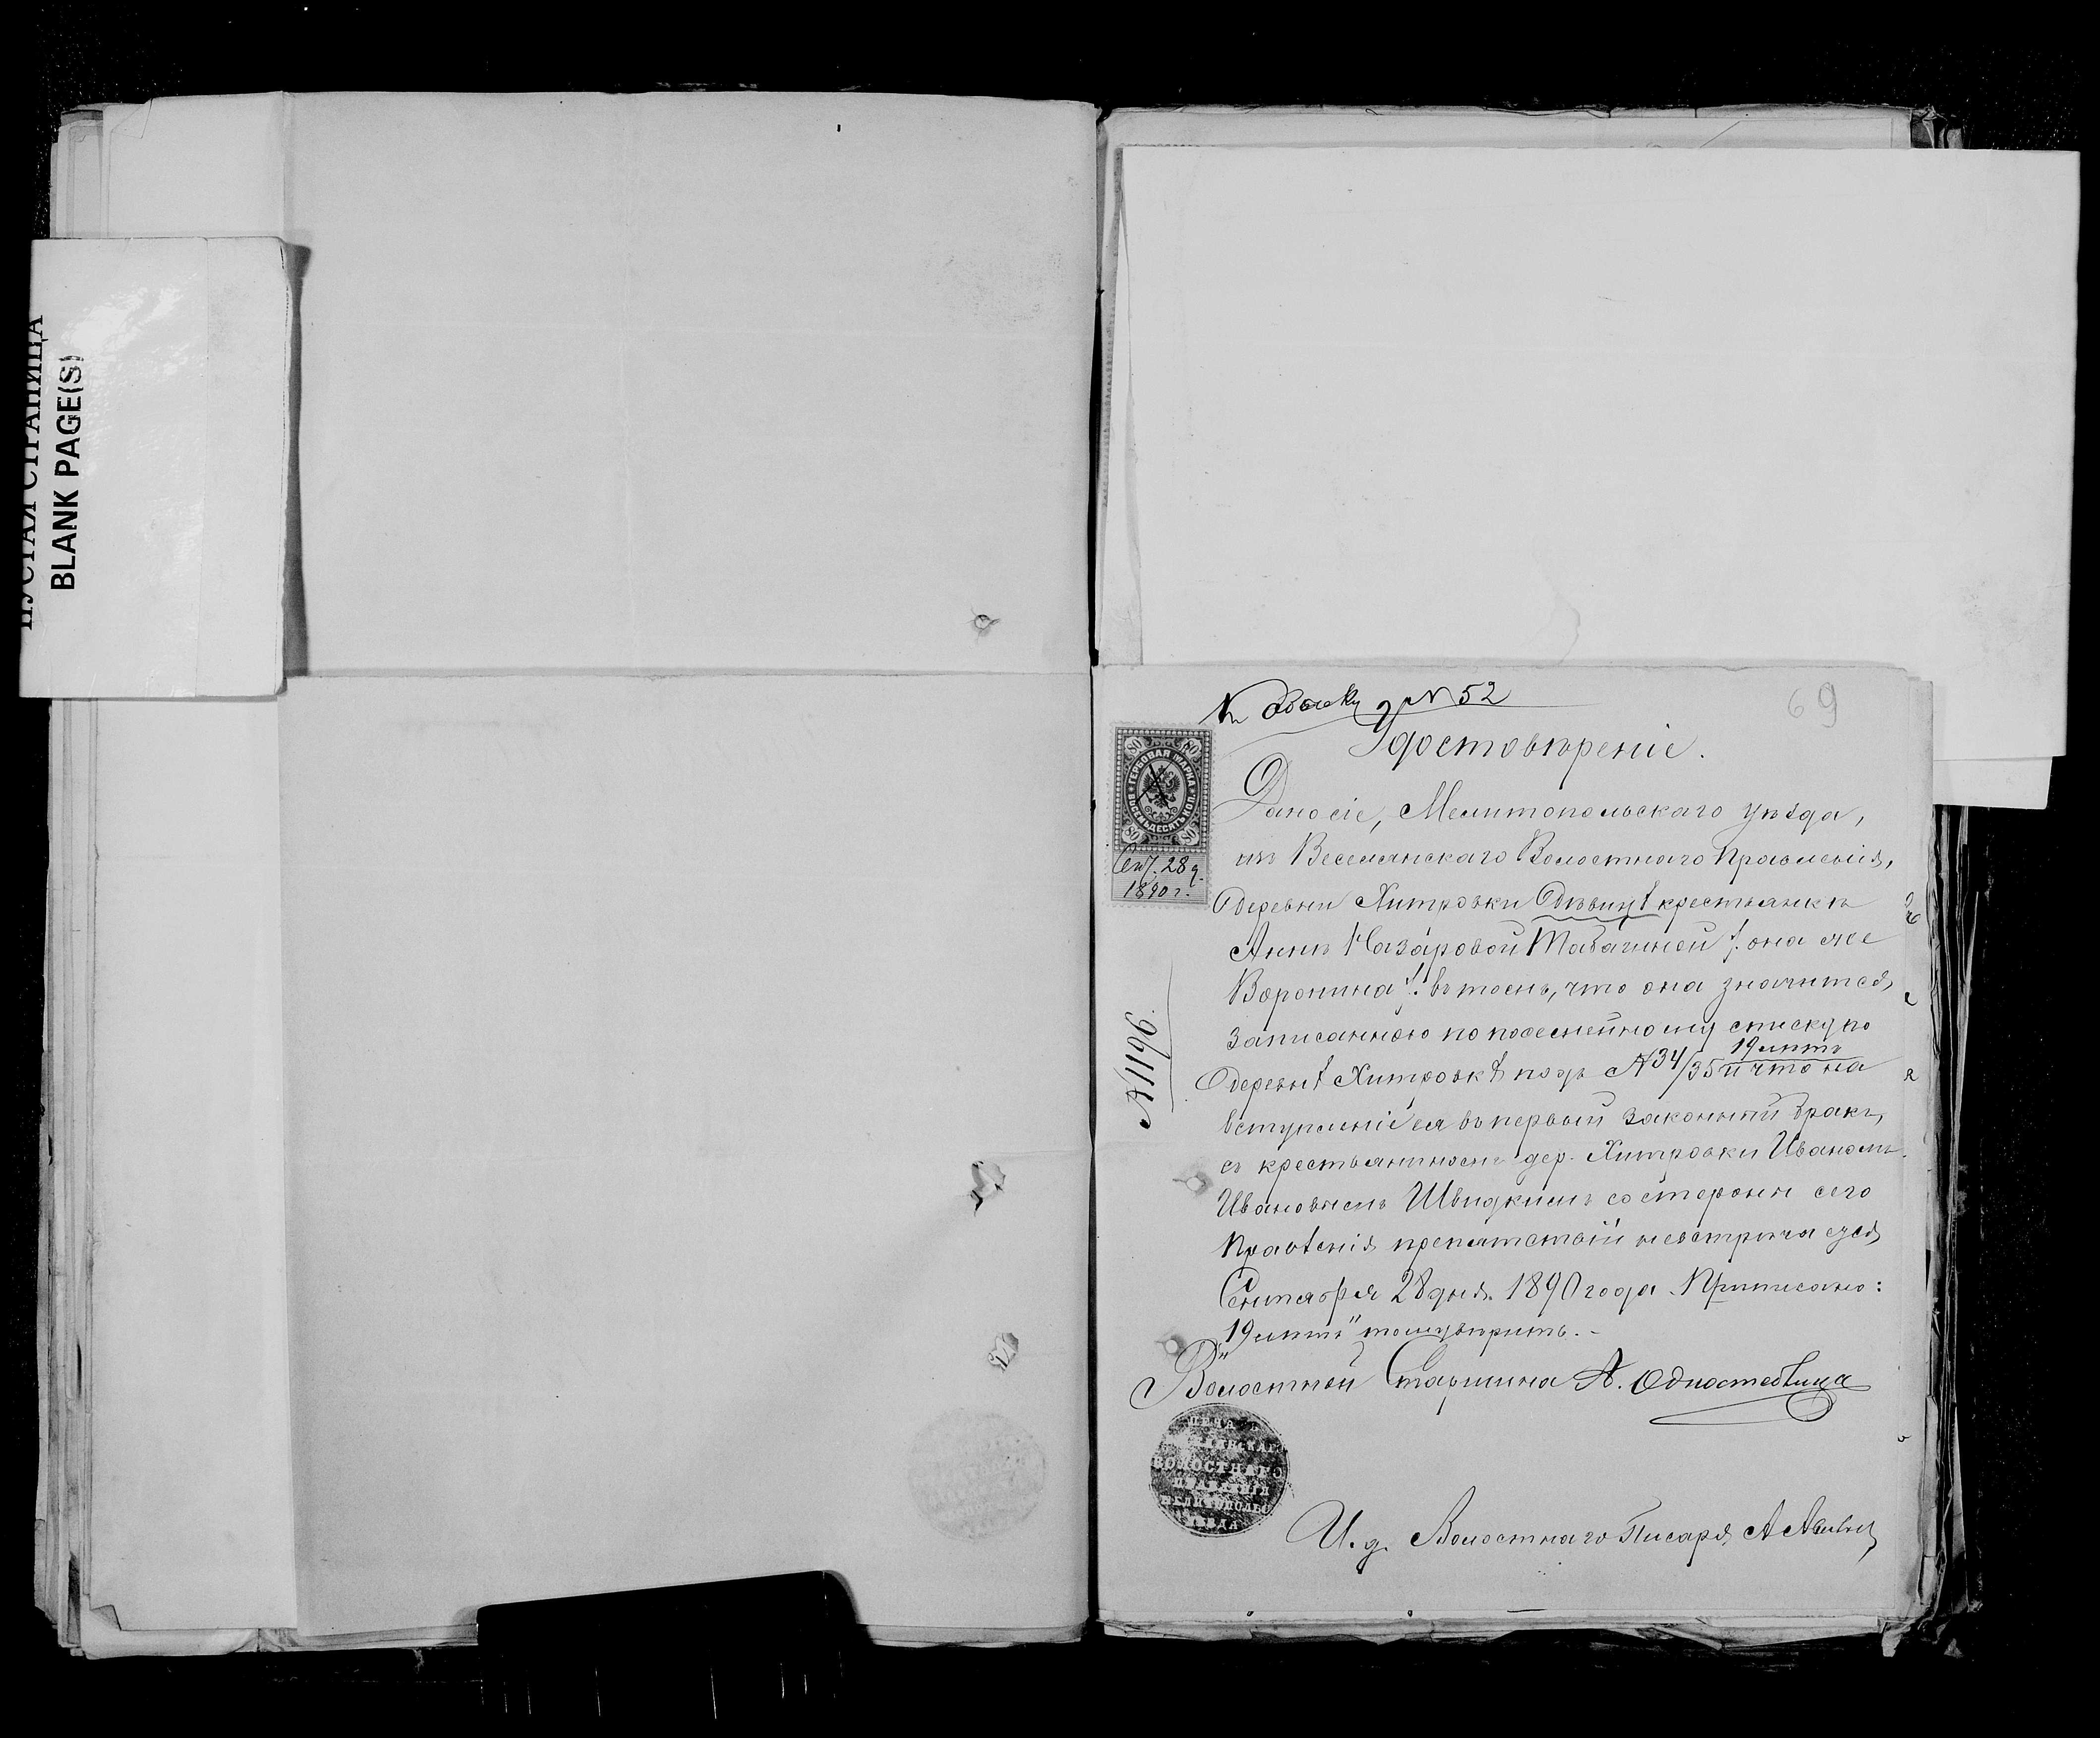 ПУСТАЯ СТРАНИЦА
BLANK PAGE(S)
Къ обыску № 52
69
Удостовѣреніе.
80 80
ГЕРБОВАЯ МАРКА ВОСЕМЬДЕСЯТЪ КОП.
80 80
Сен. 28 д.
1890 г.
№ 1196.
Дано сіе, Мелитопольскаго уѣзда,
изъ Веселянскаго Волостнаго Правленія,
деревни Хитровки дѣвицѣ крестьянкѣ
Аннѣ Назаровой Табачиной /: она же
Воронина :/ въ томъ, что она значится
записанною по посемейному списку по
деревнѣ Хитровкѣ подъ № 34/35 19 лѣтъ и что на
вступленіе ея въ первый законный бракъ,
съ крестьяниномъ дер. Хитровки Иваномъ
Ивановымъ Швидкимъ со стороны сего
Правленія препятствій не встрѣчается,
Сентября 28 дня 1890 года. Приписано:
"19 лѣтъ" тому вѣрить.
Волостной Старшина А.
ПЕЧАТЬ
ВЕСЕЛЯНСКАГО
ВОЛОСТНАГО
ПРАВЛЕНІЯ
МЕЛИТОПОЛЬС
УѢЗДА
И. д. Волостнаго Писаря А